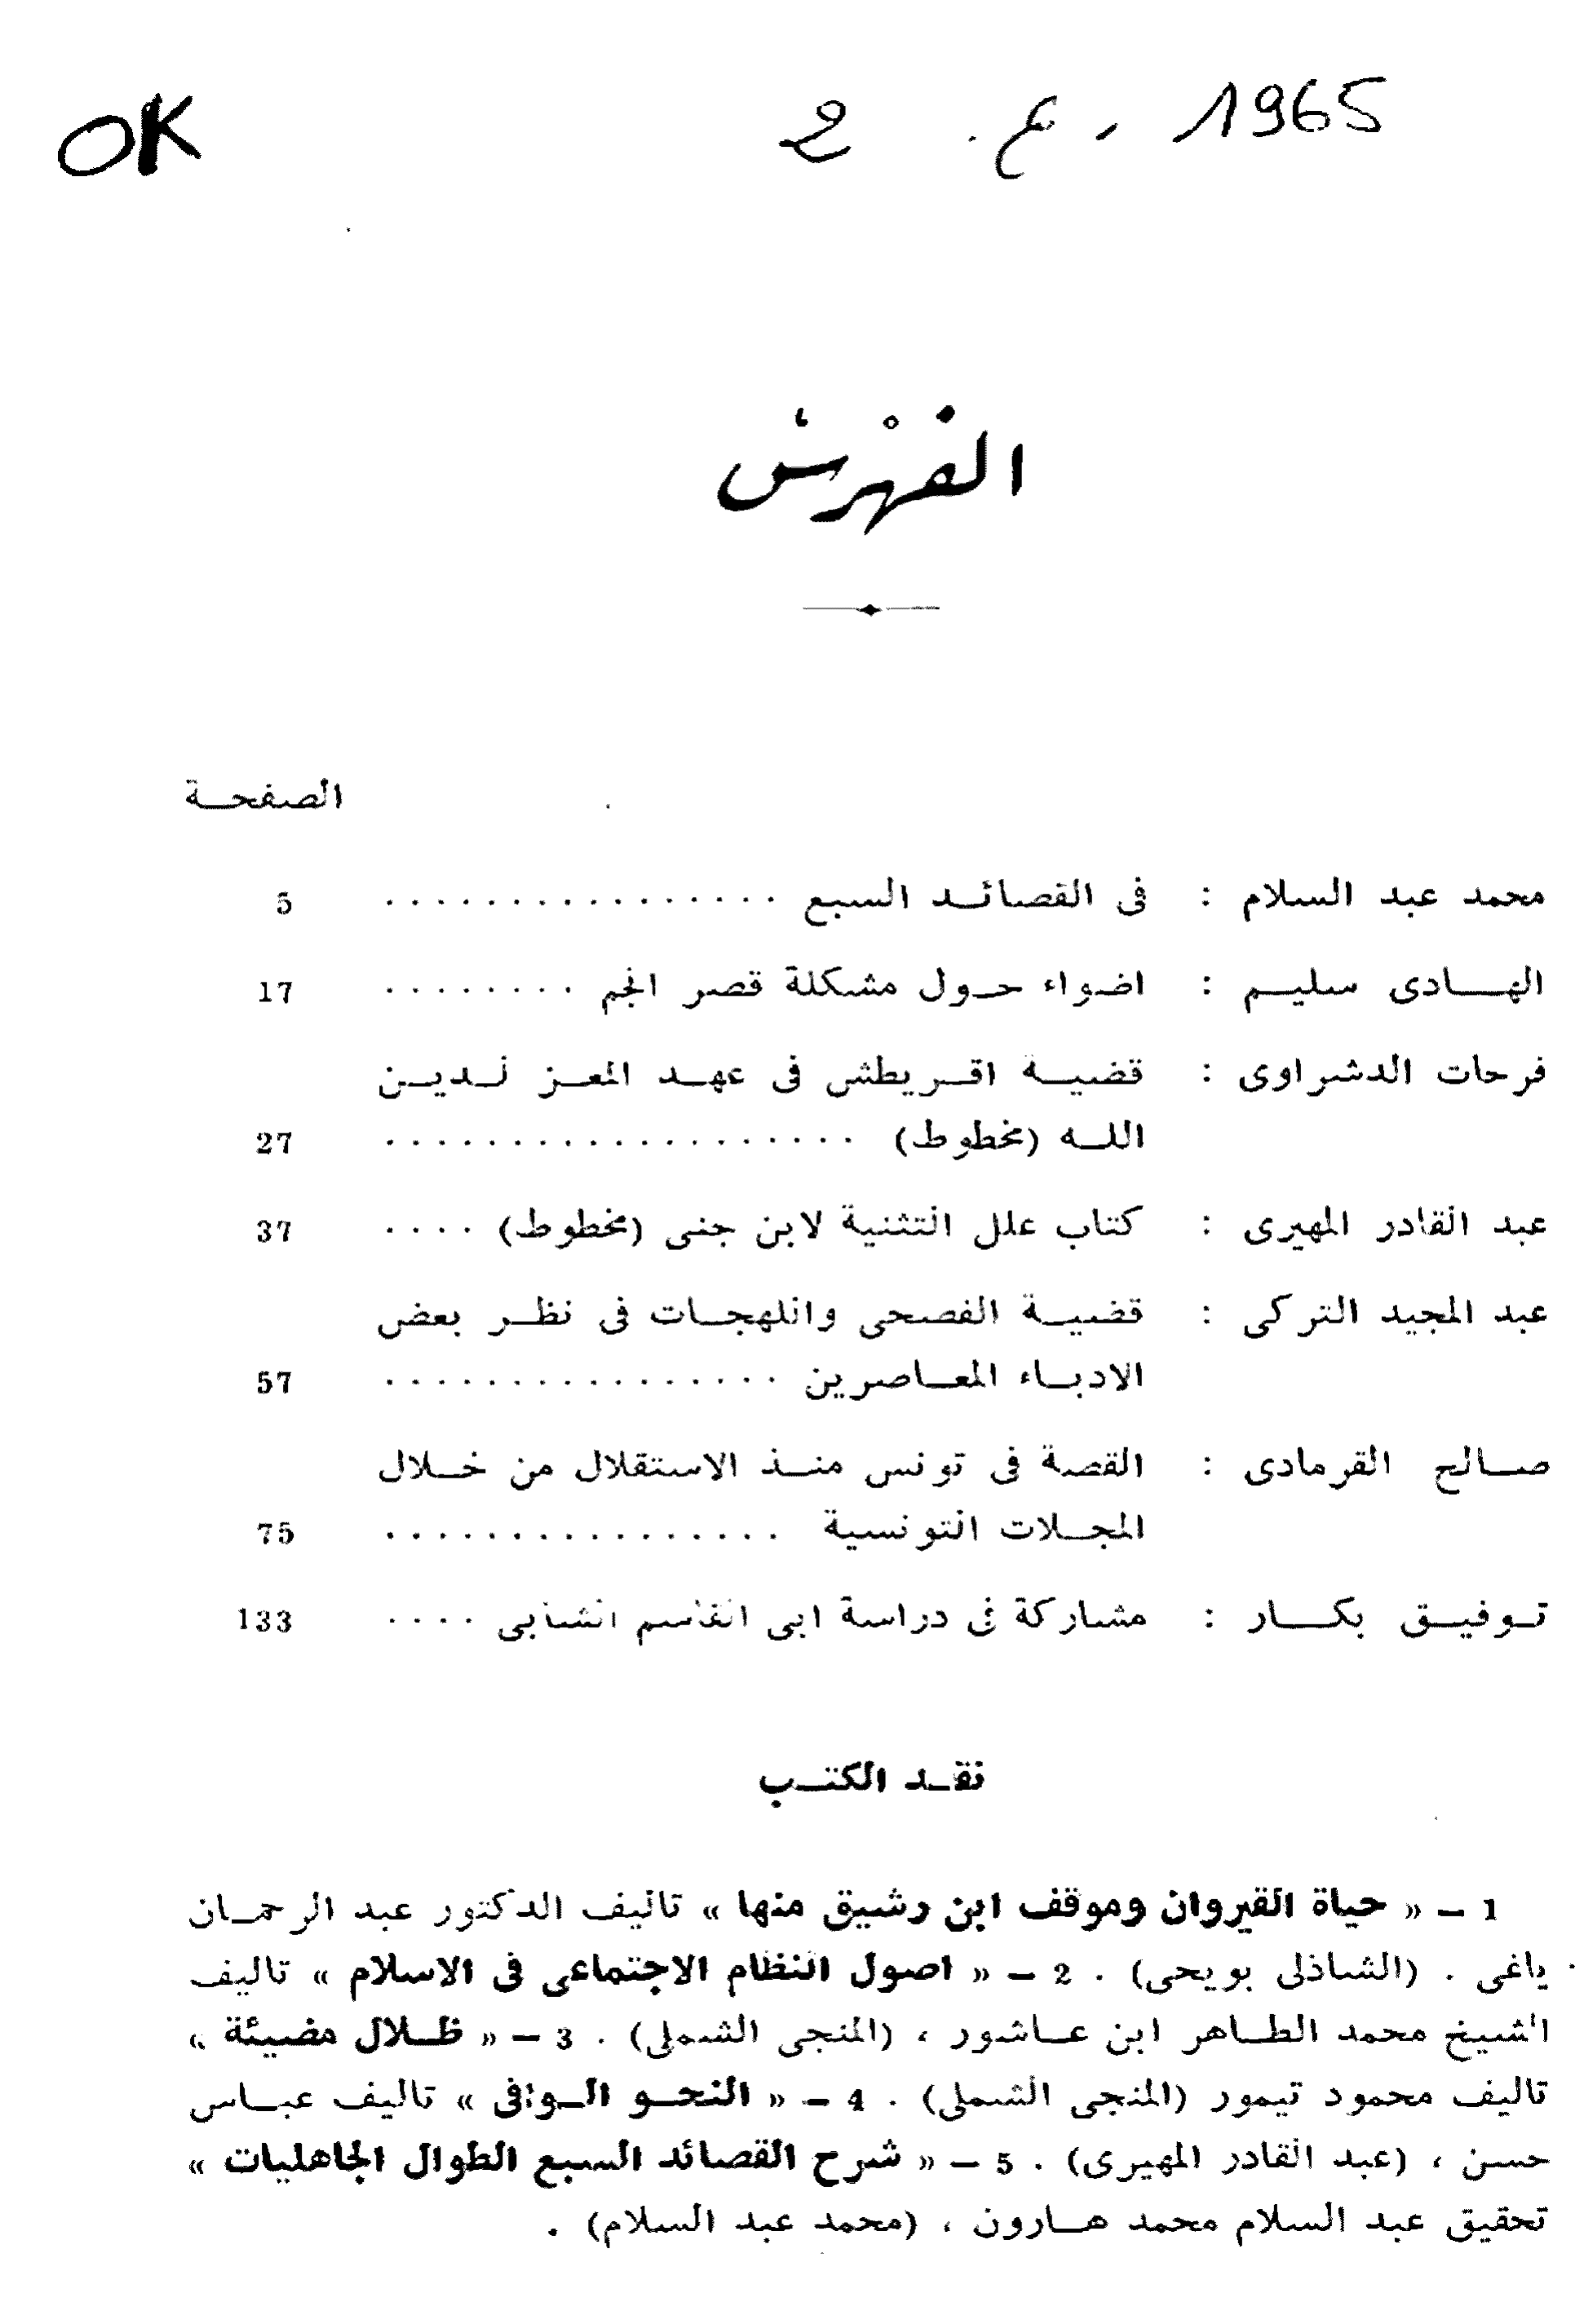 OK 2 . ع - 1965
الفهْرسُ
الصفحـــة
محمد عبد السلام : فى القصائـــد السبع . . . . . . . . . . . . . . . . 5
الهـــادى سليـــم : اضـواء حـول مشكلة قصر الجم . . . . . . . . 17
فرحات الدشراوى : قضيـــة اقـــريطش فى عهـــد المعـــز لـــديـــن
اللـــه (مخطوط) . . . . . . . . . . . . . . . . . . . 27
عبد القادر المهيرى : كتاب علل التثنية لابن جنى (مخطوط) . . . . 37
عبد المجيد التركى : قضيـــة الفصحى واللهجـــات فى نظـــر بعض
الادبـــاء المعـــاصرين . . . . . . . . . . . . . . . . 57
صـــالح القرمادى : القصة فى تونس منـــذ الاستقلال من خـــلال
المجـــلات التونسية . . . . . . . . . . . . . . . . 75
تـــوفيـــق بكـــار : مشاركة فى دراسة ابى القاسم الشابى . . . . 133
نقـــد الكتـــب
1 – « حياة القيروان وموقف ابن رشيق منها » تاليف الدكتور عبد الرحمـــان
ياغى . (الشاذلى بويحى) . 2 – « اصول النظام الاجتماعى فى الاسلام » تاليف
الشيخ محمد الطـــاهر ابن عـــاشور ، (المنجى الشملى) . 3 – « ظـــلال مضيئة »
تاليف محمود تيمور (المنجى الشملى) . 4 – « النحـــو الـــوافى » تاليف عبـــاس
حسن ، (عبد القادر المهيرى) . 5 – « شرح القصائد السبع الطوال الجاهليات »
تحقيق عبد السلام محمد هـــارون ، (محمد عبد السلام) .